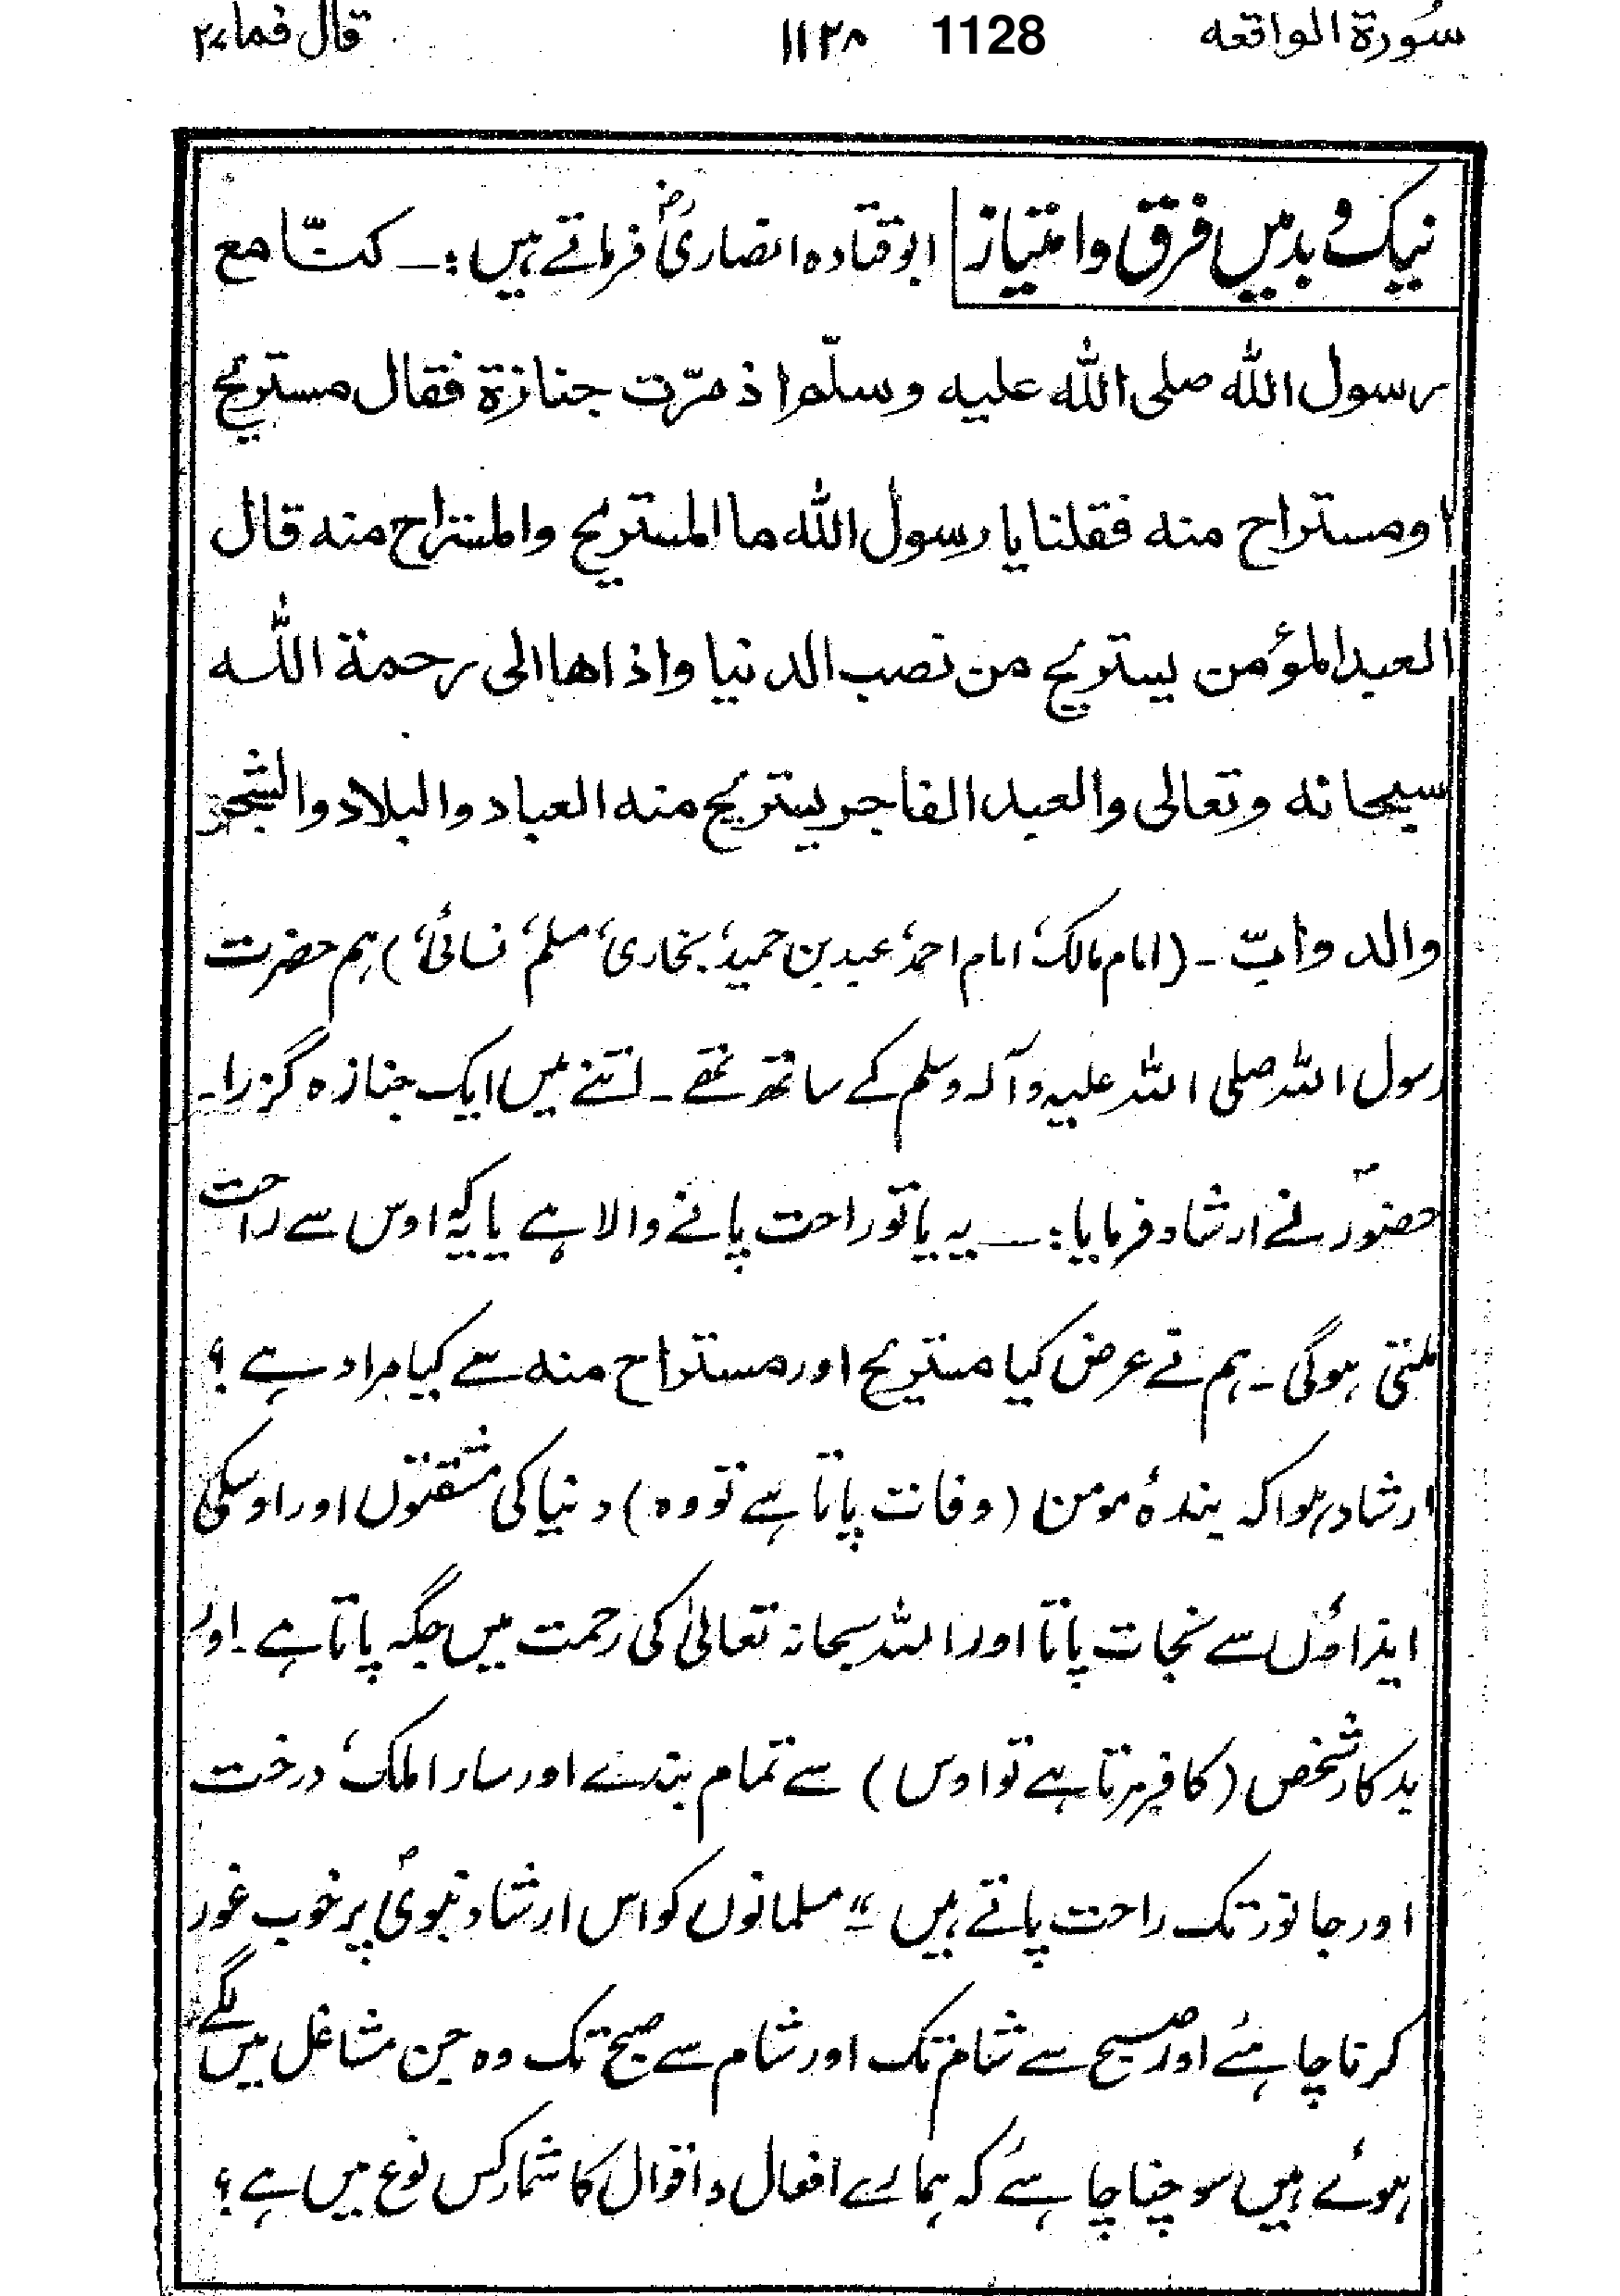 سورة الواقعه 1128 ۱۱۲۸ قال فما ۲۷
نیک و بد میں فرق و امتیاز ابو قتادہ انصاریؓ فرماتے ہیں :ـ کنّا مع
رسول الله صلی الله علیه وسلّم اذ مرّت جنازة فقال مستریح
او مستراح منه فقلنا یا رسول الله ما المستریح والمستراح منه قال
العبد المؤمن یستریح من نصب الدنیا واذاها الی رحمة الله
سبحانه وتعالی والعبد الفاجر یستریح منه العباد والبلاد والشجر
والدوابّ ۔ (امام مالک، امام احمد، عبد بن حمید، بخاری، مسلم، نسائی) ہم حضرت
رسول اللہ صلی اللہ علیہ وآلہ وسلم کے ساتھ تھے ۔ اتنے میں ایک جنازہ گزرا۔
حضورؐ نے ارشاد فرمایا :ـ یہ یا تو راحت پانے والا ہے یا یہ کہ اوس سے راحت
ملنی ہوگی ۔ ہم نے عرض کیا مستریح اور مستراح منہ سے کیا مراد ہے ؟
ارشاد ہوا کہ بندۂ مومن (وفات پاتا ہے تو وہ) دنیا کی مشقتوں اور اوسکی
ایذاؤں سے نجات پاتا اور اللہ سبحانہ تعالیٰ کی رحمت میں جگہ پاتا ہے ۔ اور
بدکار شخص (کافر مرتا ہے تو اوس) سے تمام بندے اور سارا ملک، درخت
اور جانور تک راحت پاتے ہیں" مسلمانوں کو اس ارشاد نبویؐ پر خوب غور
کرنا چاہئے اور صبح سے شام تک اور شام سے صبح تک وہ جن مشاغل میں لگے
ہوئے ہیں سوچنا چاہئے کہ ہمارے افعال و اقوال کا شمار کس نوع میں ہے ؟